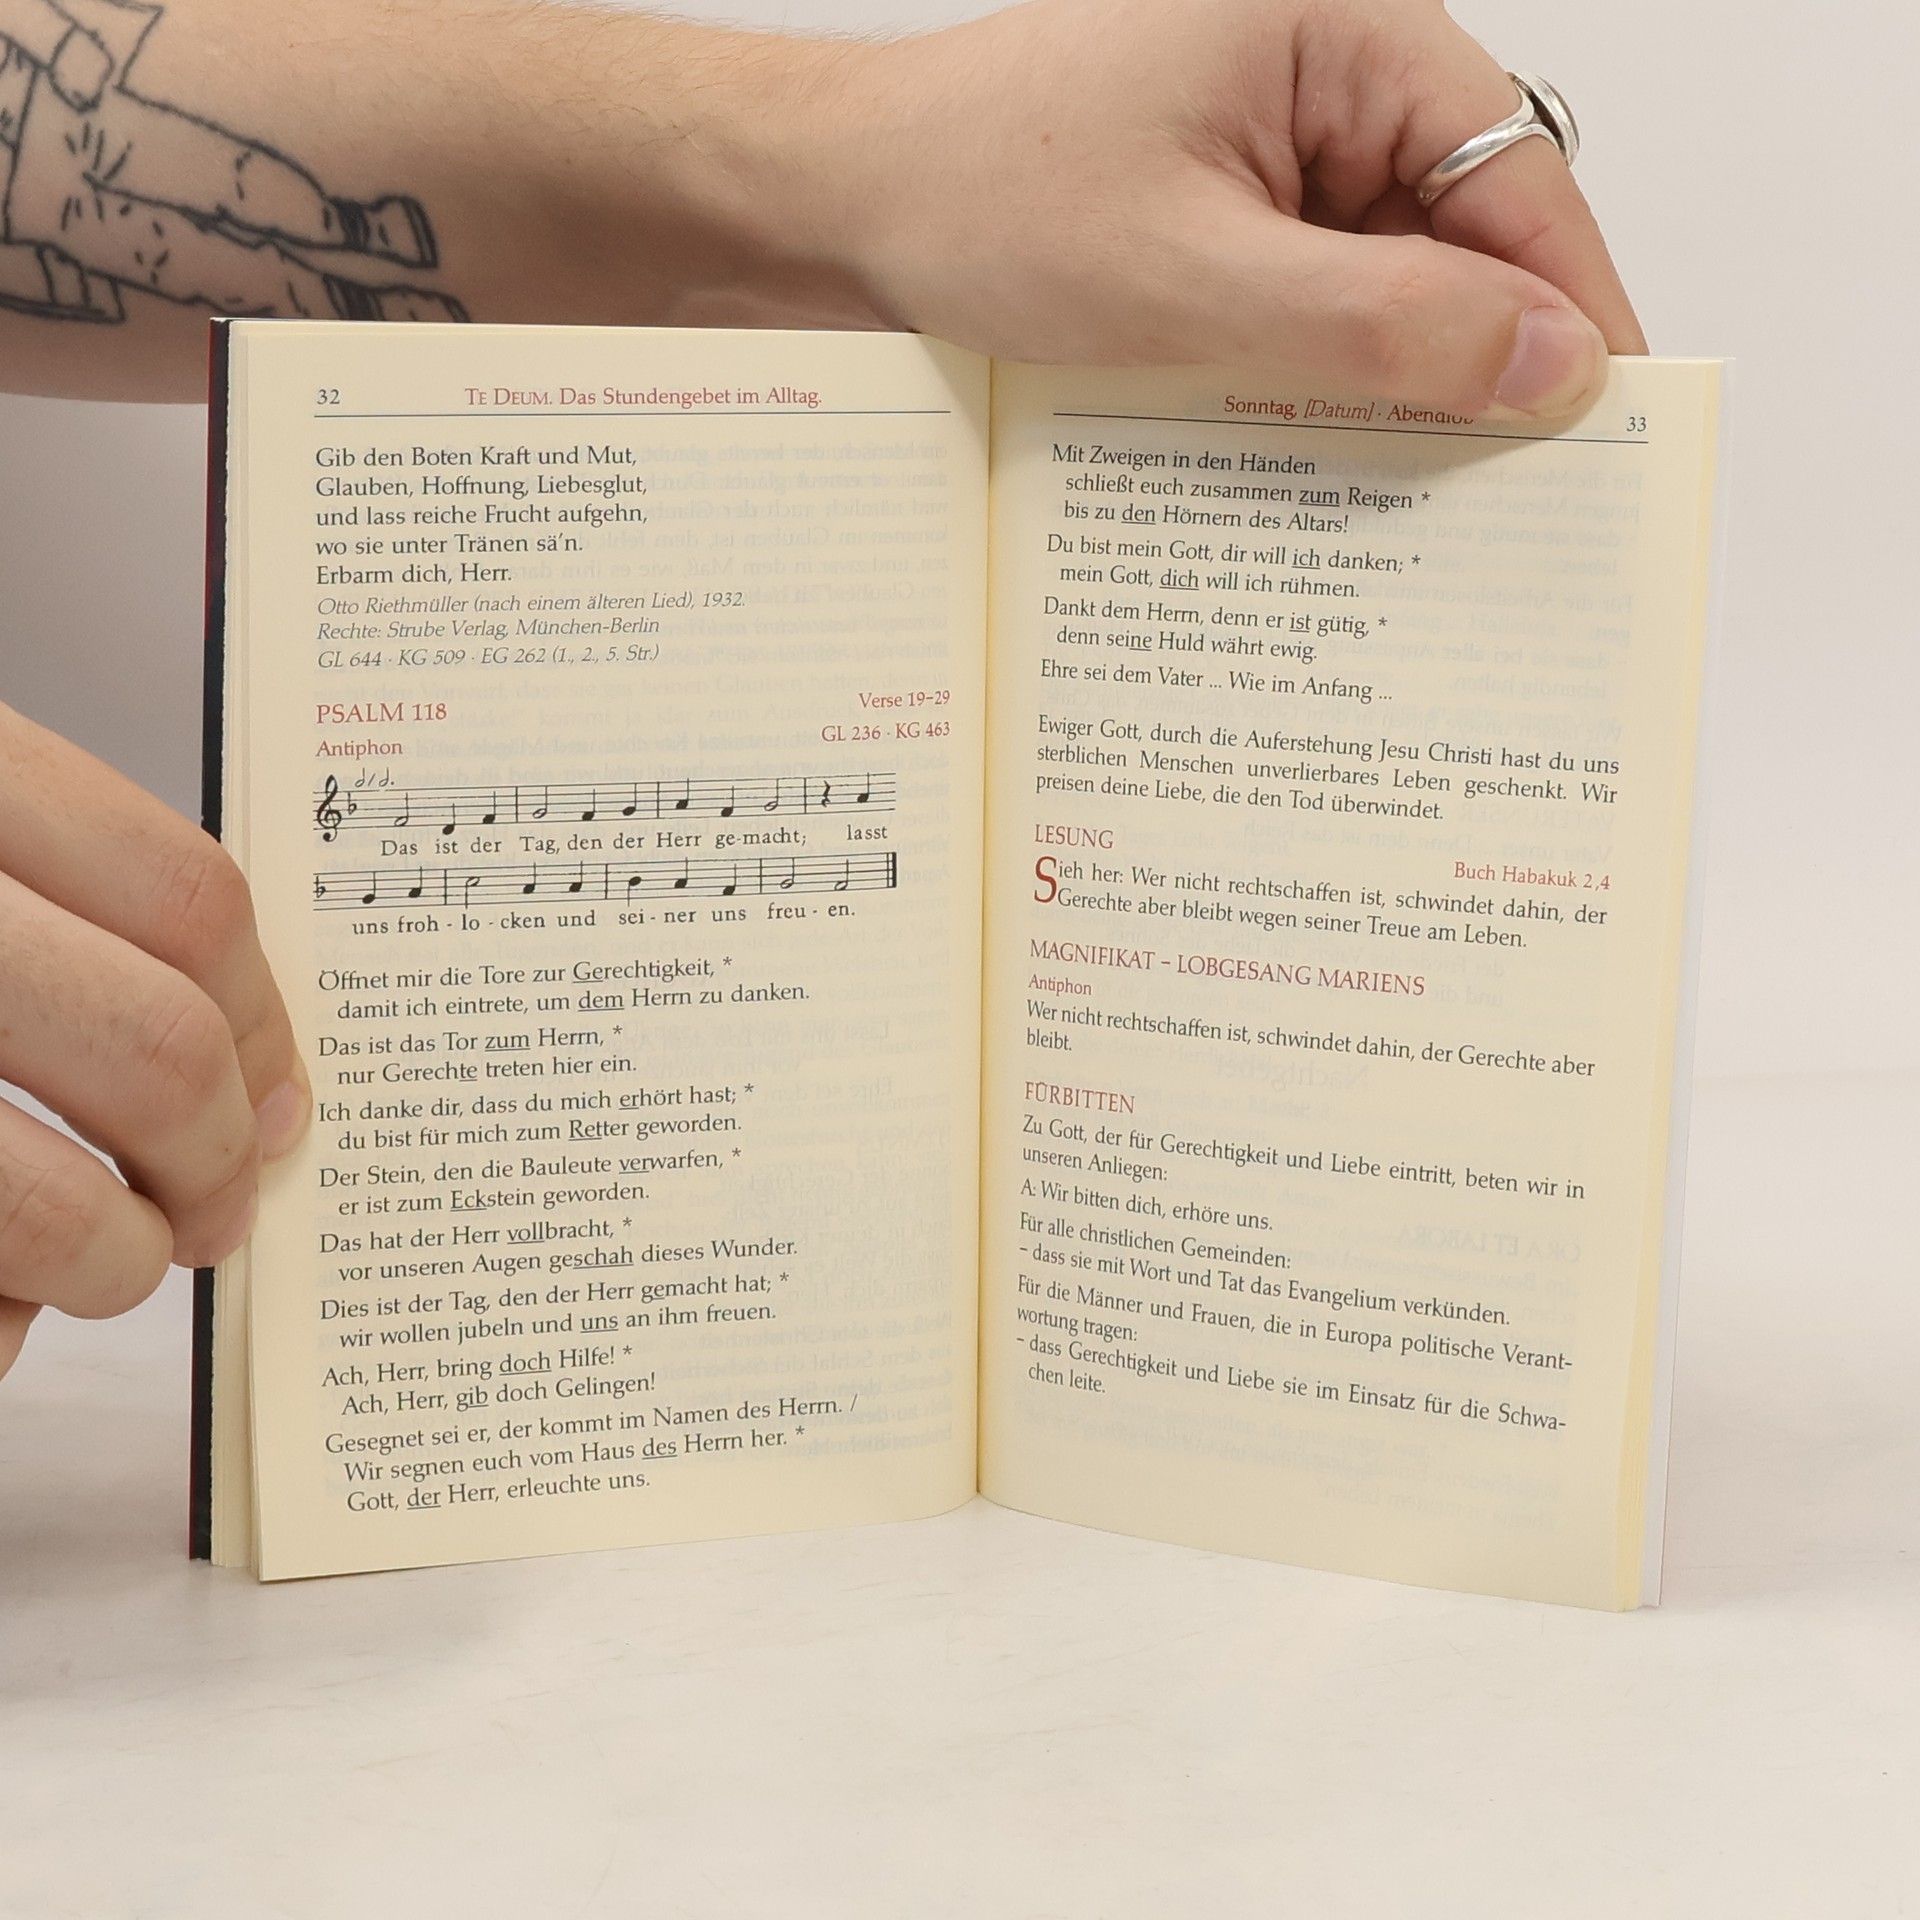 32
TE DEUM. Das Stundengebet im Alltag.
Gib den Boten Kraft und Mut,
Glauben, Hoffnung, Liebesglut,
und lass reiche Frucht aufgehn,
wo sie unter Tränen sä’n.
Erbarm dich, Herr.
Otto Riethmüller (nach einem älteren Lied), 1932.
Rechte: Strube Verlag, München-Berlin
GL 644 · KG 509 · EG 262 (1., 2., 5. Str.)
PSALM 118
Verse 19–29
Antiphon
GL 236 · KG 463
Das ist der Tag, den der Herr ge-macht; lasst
uns froh - lo - cken und sei - ner uns freu - en.
Öffnet mir die Tore zur Gerechtigkeit, *
damit ich eintrete, um dem Herrn zu danken.
Das ist das Tor zum Herrn, *
nur Gerechte treten hier ein.
Ich danke dir, dass du mich erhört hast; *
du bist für mich zum Retter geworden.
Der Stein, den die Bauleute verwarfen, *
er ist zum Eckstein geworden.
Das hat der Herr vollbracht, *
vor unseren Augen geschah dieses Wunder.
Dies ist der Tag, den der Herr gemacht hat; *
wir wollen jubeln und uns an ihm freuen.
Ach, Herr, bring doch Hilfe! *
Ach, Herr, gib doch Gelingen!
Gesegnet sei er, der kommt im Namen des Herrn. /
Wir segnen euch vom Haus des Herrn her. *
Gott, der Herr, erleuchte uns.
Sonntag, [Datum] · Abendlob
33
Mit Zweigen in den Händen
schließt euch zusammen zum Reigen *
bis zu den Hörnern des Altars!
Du bist mein Gott, dir will ich danken; *
mein Gott, dich will ich rühmen.
Dankt dem Herrn, denn er ist gütig, *
denn seine Huld währt ewig.
Ehre sei dem Vater ... Wie im Anfang ...
Ewiger Gott, durch die Auferstehung Jesu Christi hast du uns
sterblichen Menschen unverlierbares Leben geschenkt. Wir
preisen deine Liebe, die den Tod überwindet.
LESUNG
Buch Habakuk 2,4
Sieh her: Wer nicht rechtschaffen ist, schwindet dahin, der
Gerechte aber bleibt wegen seiner Treue am Leben.
MAGNIFIKAT – LOBGESANG MARIENS
Antiphon
Wer nicht rechtschaffen ist, schwindet dahin, der Gerechte aber
bleibt.
FÜRBITTEN
Zu Gott, der für Gerechtigkeit und Liebe eintritt, beten wir in
unseren Anliegen:
A: Wir bitten dich, erhöre uns.
Für alle christlichen Gemeinden:
– dass sie mit Wort und Tat das Evangelium verkünden.
Für die Männer und Frauen, die in Europa politische Verant-
wortung tragen:
– dass Gerechtigkeit und Liebe sie im Einsatz für die Schwa-
chen leite.